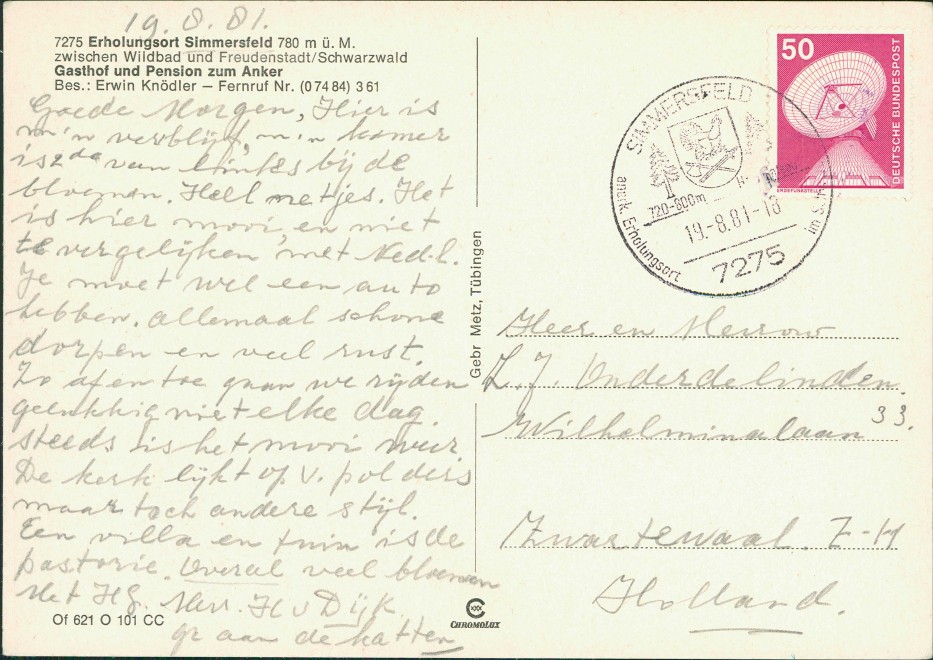 19.8.81.
7275 Erholungsort Simmersfeld 780 m ü. M.
zwischen Wildbad und Freudenstadt/Schwarzwald
Gasthof und Pension zum Anker
Bes.: Erwin Knödler – Fernruf Nr. (0 74 84) 3 61
Goede Morgen, Hier is
m'n verblijf, m'n kamer
is 2de van links bij de
bloemen. Heel netjes. Het
is hier mooi, en niet
te vergelijken met Ned.l.
Je moet wel een auto
hebben. allemaal schone
dorpen en veel rust.
Zo af en toe gaan we rijden
gelukkig niet elke dag.
steeds is het mooi weer.
De kerk lijkt op V. polders
maar toch andere stijl.
Een villa en tuin is de
pastorie. Overal veel bloemen
Met Hg. Mevr. H v Dijk.
gr aan de katten
Of 621 O 101 CC
CHROMOLUX
Gebr Metz, Tübingen
SIMMERSFELD
720-800m
19.-8.81-18
anerk. Erholungsort
7275
50
DEUTSCHE BUNDESPOST
ERDEFUNKSTELLE
Heer en Mevrouw
L. J. Onderdelinden.
Wilhelminalaan 33.
Zwartewaal. Z-H
Holland.